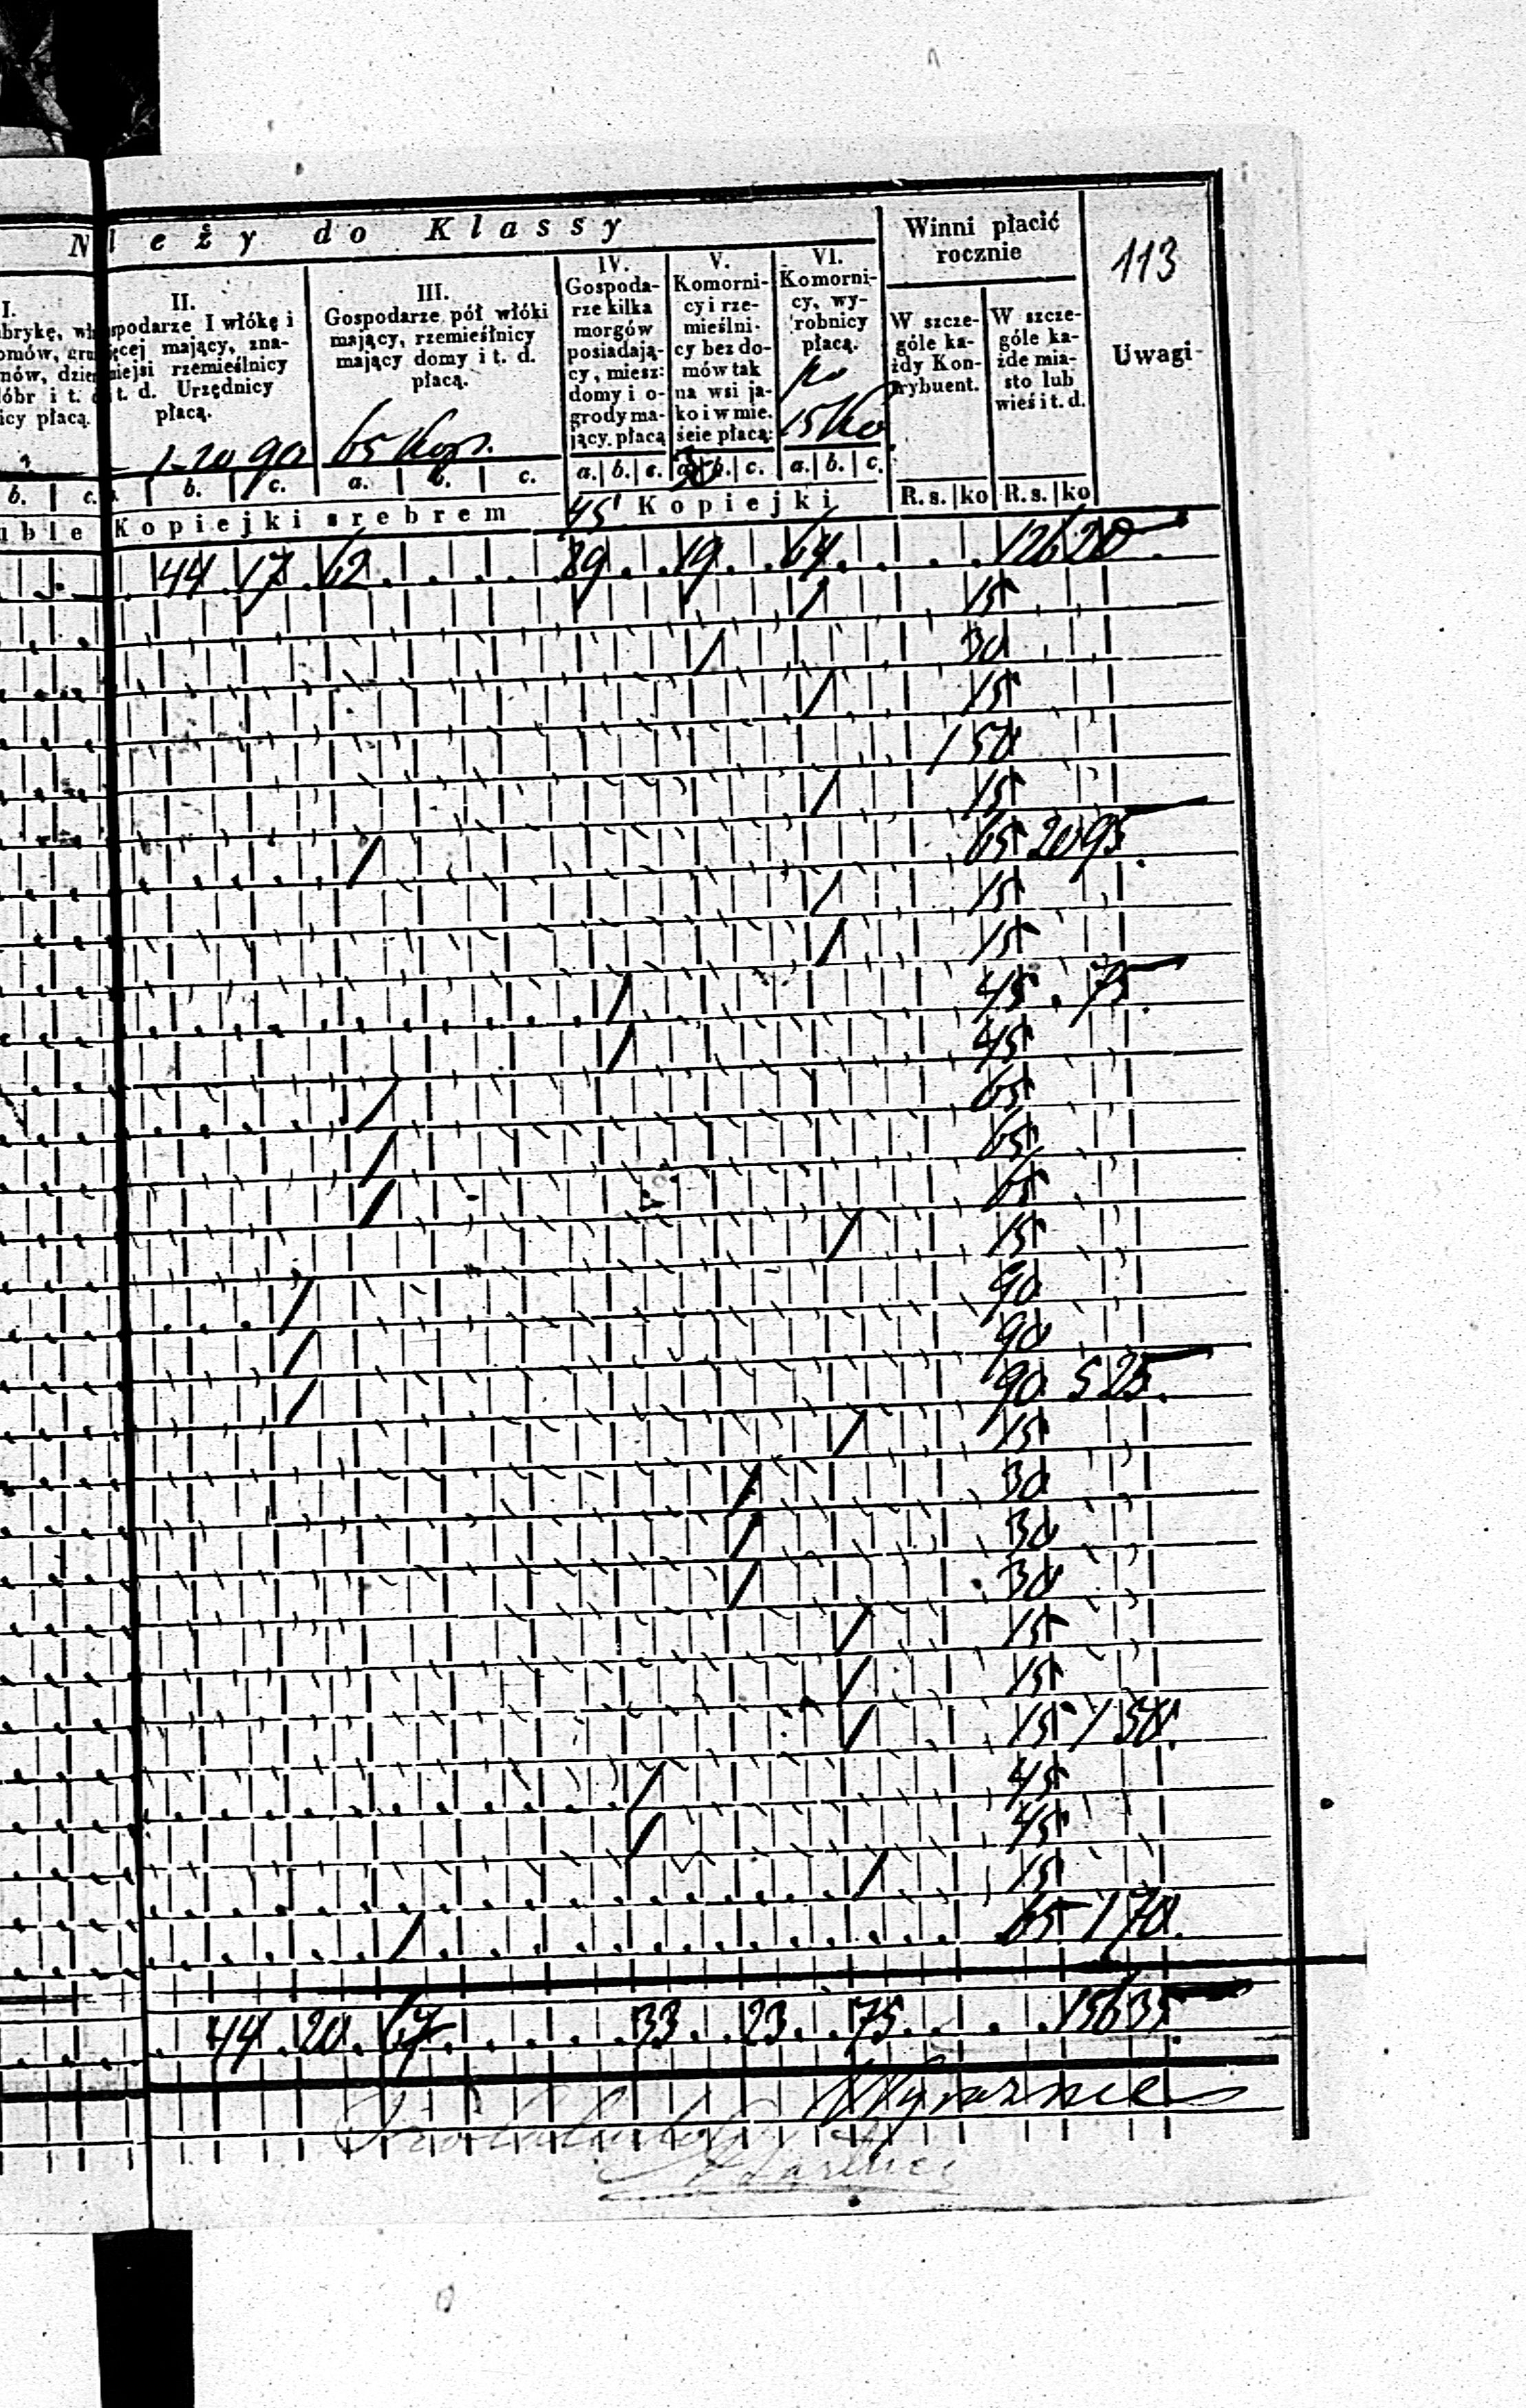 N leży do Klassy
Winni płacić
rocznie
113
I.
brykę, wł
omów, gru
nów, dzier
óbr i t. d
icy płacą.
II.
spodarze I włókę i
ęcej mający, zna-
niejsi rzemieślnicy
t. d. Urzędnicy
płacą.
1-20 90
III.
Gospodarze pół włóki
mający, rzemieślnicy
mający domy i t. d.
płacą.
65 Kop.
IV.
Gospoda-
rze kilka
morgów
posiadają-
cy, miesz:
domy i o-
grody ma-
jący. płacą
V.
Komorni-
cy i rze-
mieślni-
cy bez do-
mów tak
na wsi ja-
ko i w mie.
ście płacą:
30
VI.
Komorni-
cy, wy-
robnicy
płacą.
po
15 Ko
W szcze-
góle ka-
żdy Kon-
trybuent.
W szcze-
góle ka-
żde mia-
sto lub
wieś i t. d.
Uwagi
b. c. b. c. a. b. c. a. b. c. a. b. c. a. b. c. R. s. ko R. s. ko
uble Kopiejki srebrem 45 Kopiejki
44 17 62 29 19 64 126 20
/ 15
/ 30
/ 15
1 50
/ 15
/ 65 20 95
/ 15
/ 15
/ 45 75
/ 45
/ 65
/ 65
/ 65
/ 15
/ 90
/ 90
/ 90 5 25
/ 15
/ 30
/ 30
/ 30
/ 15
/ 15
/ 15 1 50
/ 45
/ 45
/ 15
/ 65 1 70
44 20 67 33 23 75 156 35